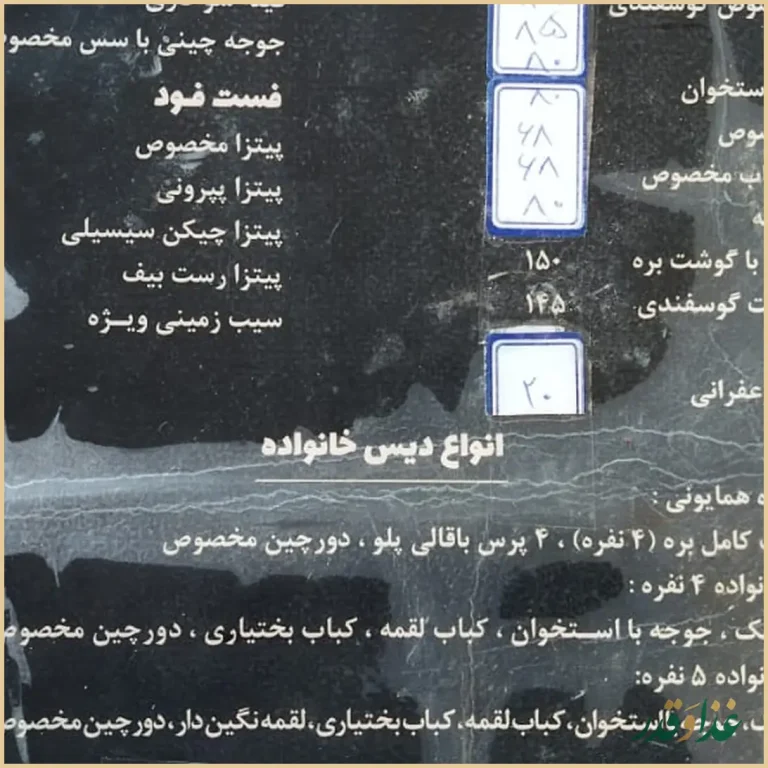 گوسفندی
۸۵
۸۰
ستخوان
۸۰
۶۸
ب مخصوص
۶۸
۸۰
با گوشت بره
۱۵۰
ت گوسفندی
۱۴۵
عفرانی
۲۰
جوجه چینی با سس مخصو
فست فود
پیتزا مخصوص
پیتزا پپرونی
پیتزا چیکن سیسیلی
پیتزا رست بیف
سیب زمینی ویژه
انواع دیس خانواده
ه همایونی :
کامل بره (۴ نفره) ، ۴ پرس باقالی پلو ، دورچین مخصوص
نواده ۴ نفره :
ک ، جوجه با استخوان ، کباب لقمه ، کباب بختیاری ، دورچین مخصوص
نواده ۵ نفره:
استخوان، کباب لقمه، کباب بختیاری، لقمه نگین دار، دورچین مخصوص
غذا و قدر